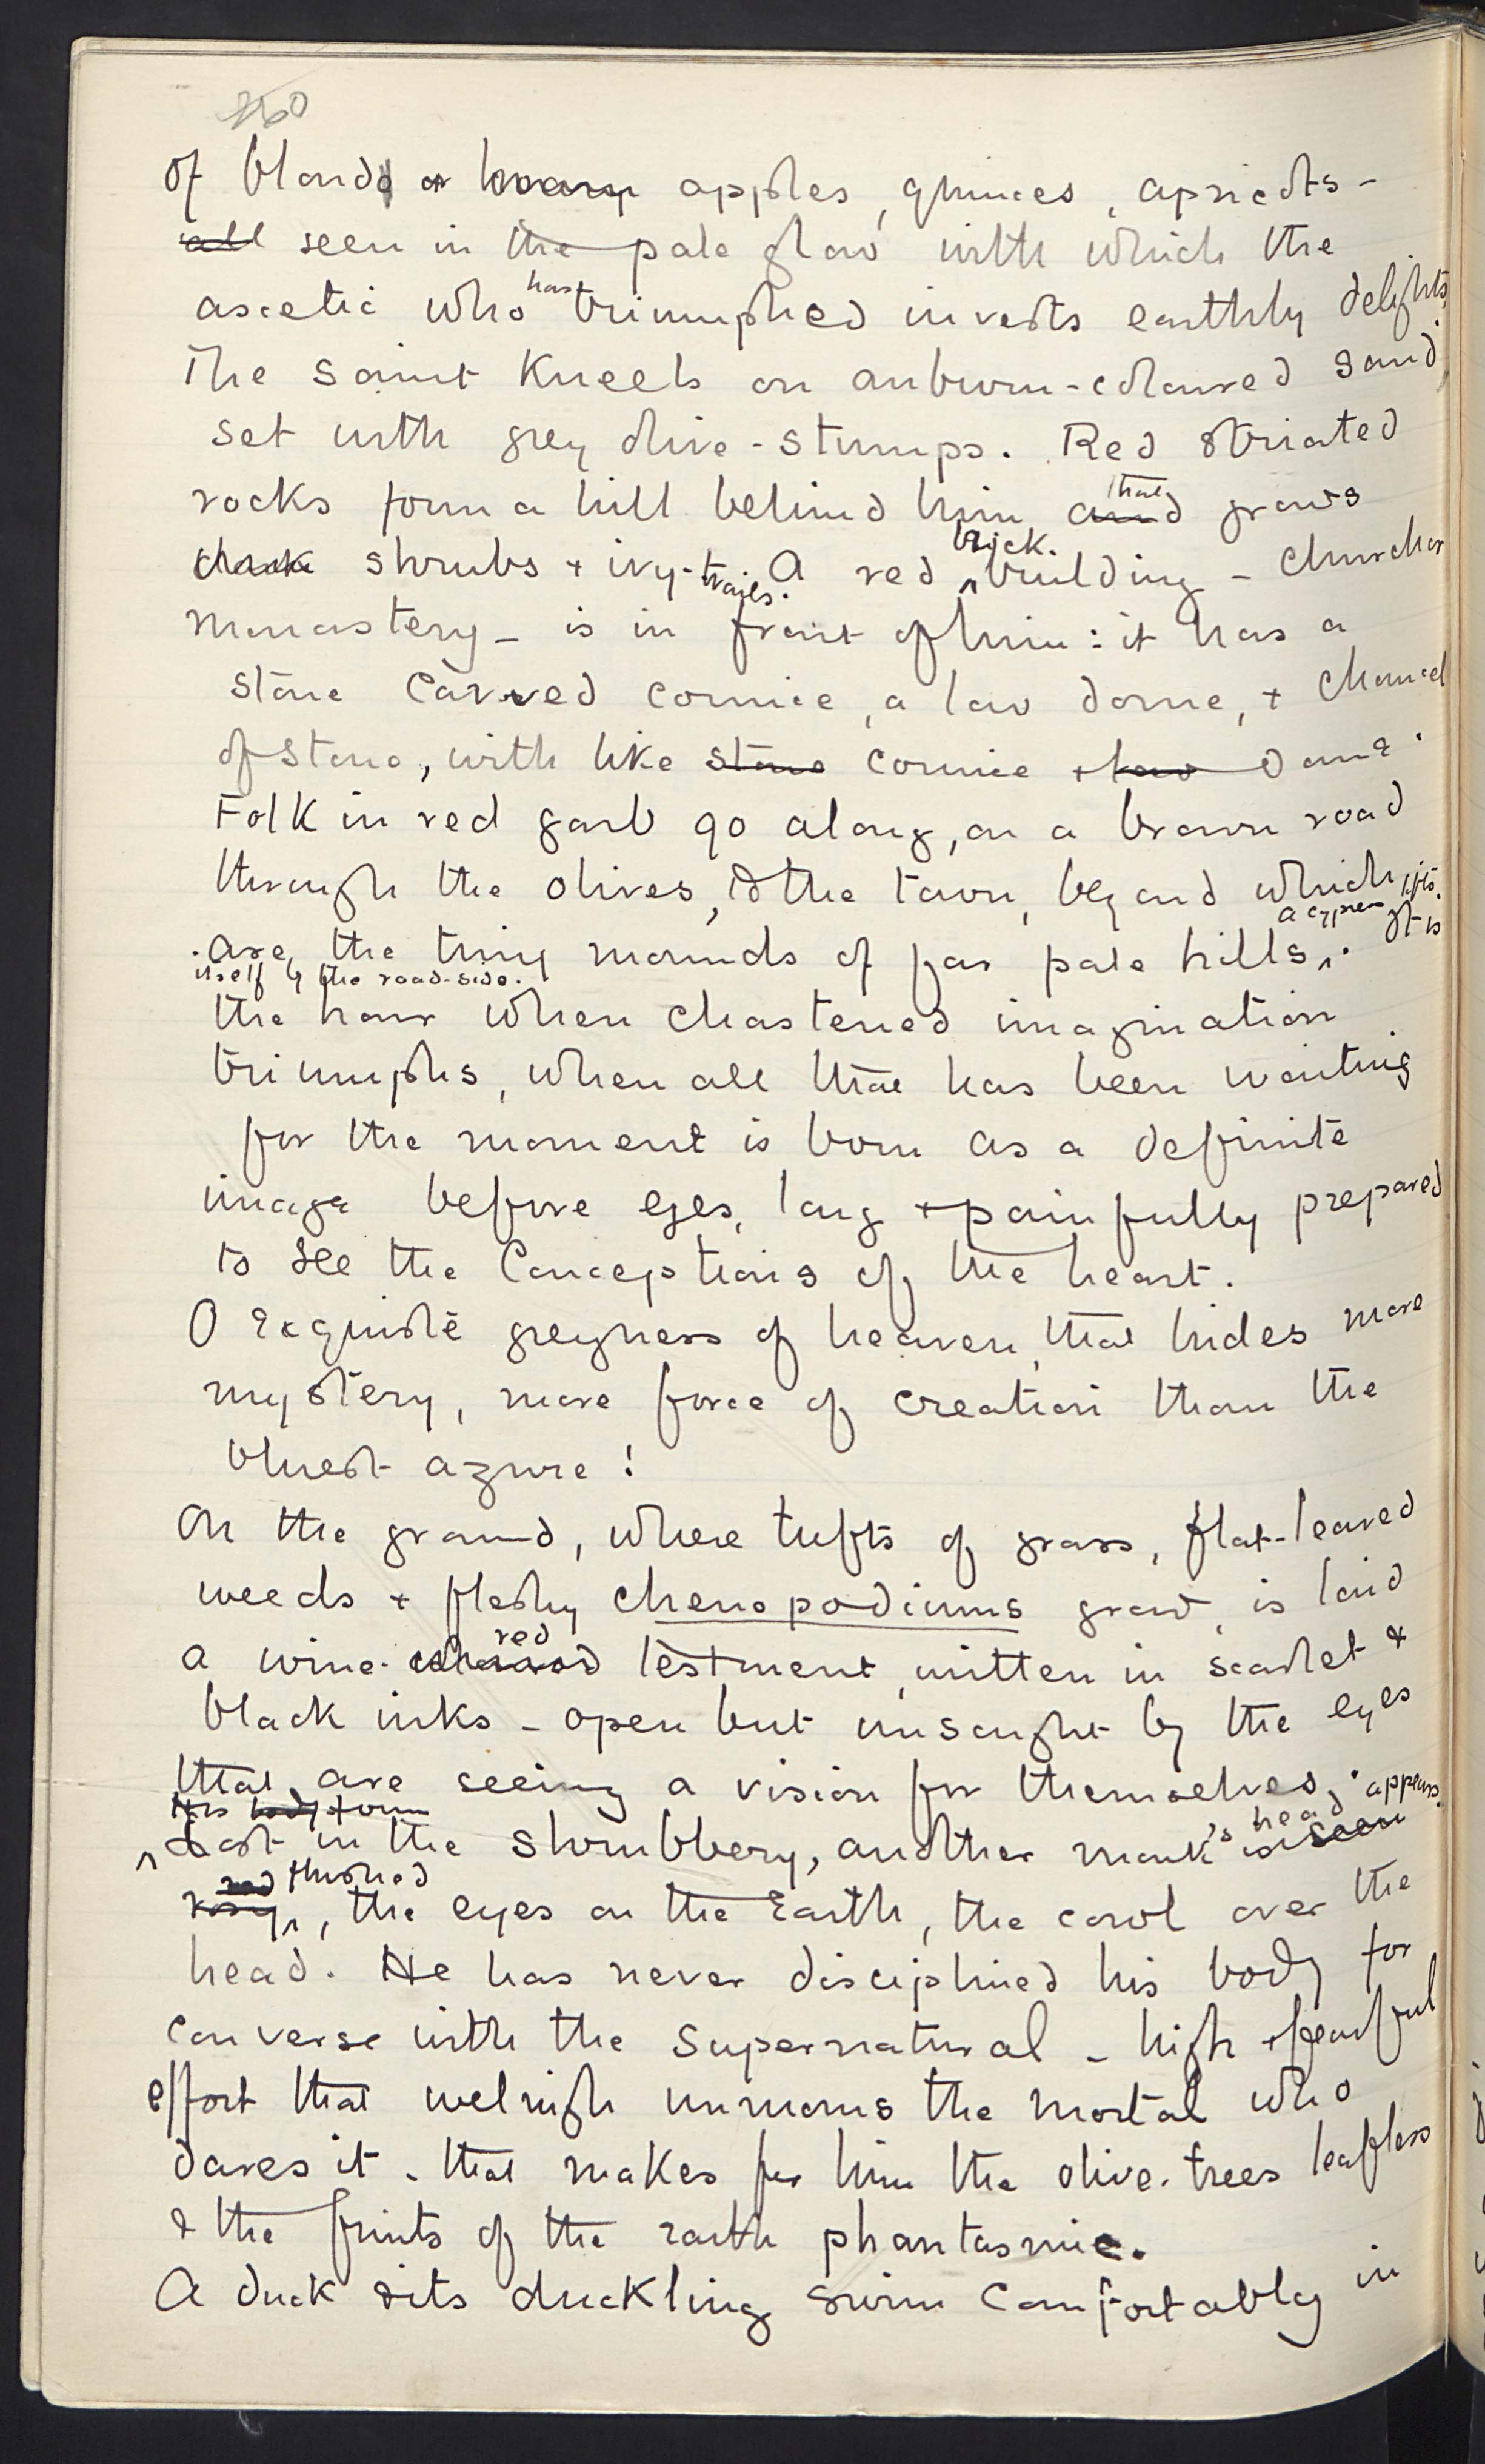 260
of bland or waxy apples, quinces, apricots -
all seen in the pale glow with which the
ascetic who has triumphed invests earthly delights.
The Saint Kneels on auburn-coloured sand,
set with grey olive-stumps. Red striated
rocks form a hill behind him and that grows
dark shrubs + ivy-trails. A red brick building - church or
monastery - is in front of him: it has a
stone carved cornice, a low dome, + chancel
of stone, with like stone cornice + low dome.
Folk in red garb go along, on a brown road
through the olives, to the town, beyond which
are the tiny mounds of far pale hills. a cypress lifts
itself by the road-side. It is
the hour when chastened imagination
triumphs, when all that has been waiting
for the moment is born as a definite
image before eyes, long + painfully prepared
to see the Conceptions of the heart.
O exquisite greyness of heaven, that hides more
mystery, more force of creation than the
bluest azure!
On the ground, where tufts of grass, flat-leaved
weeds + fleshy chenopodiums grow, is laid
a wine-coloured red testment, written in scarlet &
black inks - open but unsought by the eyes
that are seeing a vision for themselves.
His body + form
Lost in the shrubbery, another monk's head is seen appears.
rosy, red flushed, the eyes on the Earth, the cowl over the
head. He has never disciplined his body for
converse with the Supernatural - high + fearful
effort that welnigh unmans the mortal who
dares it - that makes for him the olive-trees leafless
& the fruits of the earth phantasmic.
A duck & its duckling swim comfortably in